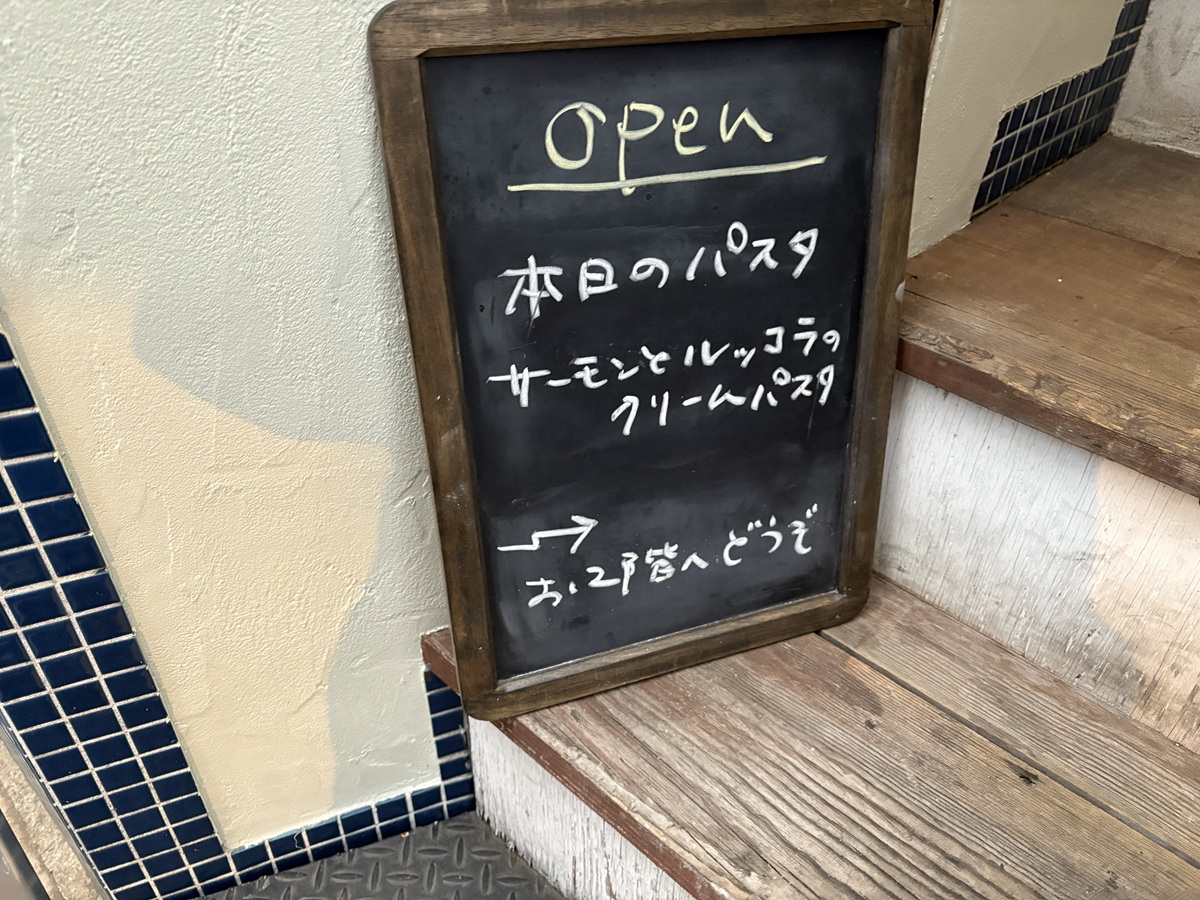 Open
本日のパスタ
サーモンとルッコラの
クリームパスタ
→
お2階へどうぞ